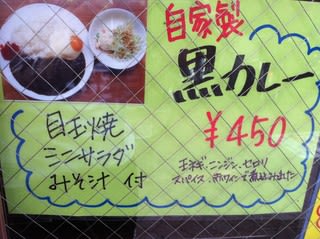 自家製
黒カレー
￥450
目玉焼
ミニサラダ
みそ汁 付
玉ネギ、ニンジン、セロリ
スパイス、赤ワインで煮込みました